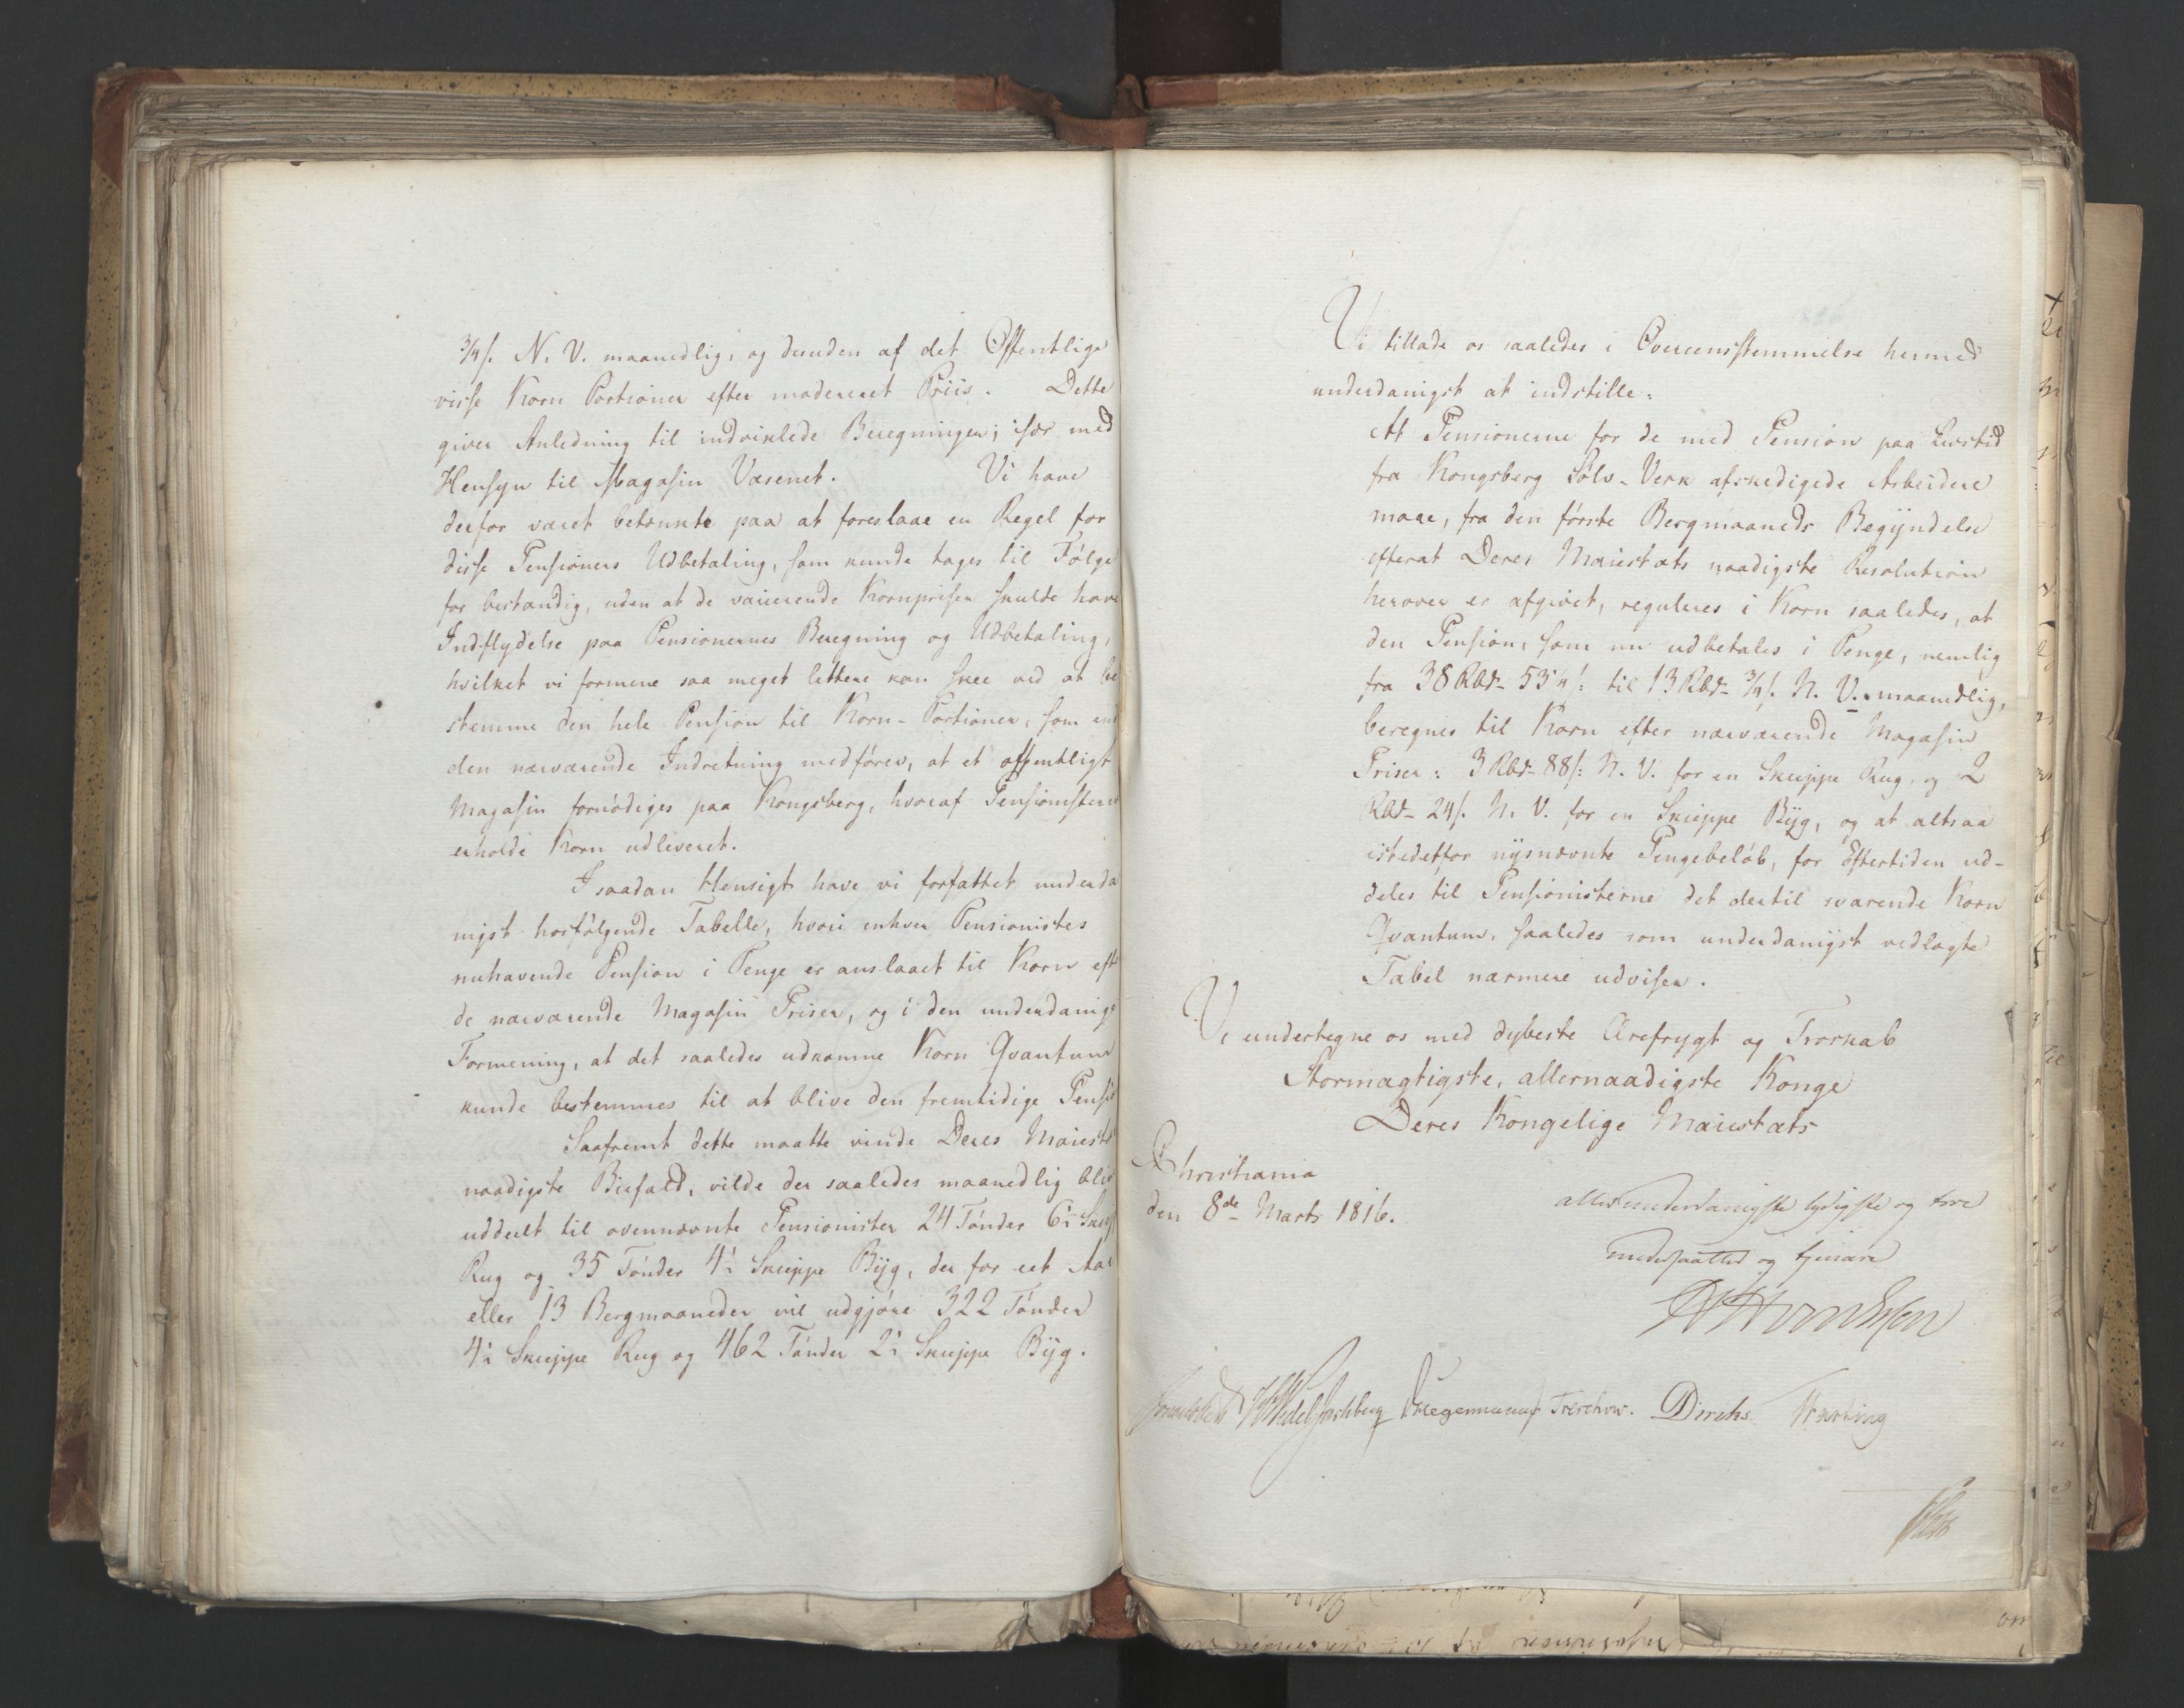 3/4 s. N. V. maanedlig, og desuden af det Offentlige
visse Korn Portioner efter modereret Priis. Dette
giver Anledning til indviklede Beregninger; især med
Hensyn til Magasin Væsenet. Vi have
derfor været betænkte paa at foreslaae en Regel for
disse Pensioners Udbetaling, som kunde tages til Følge
for bestandig, uden at de varierende Kornpriser skulde have
Indflydelse paa Pensionernes Beregning og Udbetaling,
hvilket vi formene saa meget lettere kan skee ved at be
stemme den hele Pension til Korn-Portioner, som
den nærværende Indretning medfører, at et offentligt
Magasin fornødiges paa Kongsberg, hvoraf
erholde Korn udleveret.
I saadan Hensigt have vi forfattet underda
nigst hosfølgende Tabelle, hvori enhver Pensionistes
nuhavende Pension i Penge er anslaaet til Korn eft
de nærværende Magasin Priser, og i den underdanige
Formening, at det saaledes udkomne Korn Qvantum
kunde bestemmes til at blive den fremtidige Pensi
Saafremt dette maatte vinde Deres Maiestæts
naadigste Biefald, vilde der saaledes maanedlig blive
uddeelt til ovennævnte Pensionister 24 Tønder 6½ Skiep
Rug og 35 Tønder 4½ Skieppe Byg, der for eet Aar
eller 13 Bergmaaneder vil udgjøre 322 Tønder
4½ Skieppe Rug og 462 Tønder 2½ Skieppe Byg.
Vi tillade os saaledes i Overeensstemmelse hermed
underdanigst at indstille:
At Pensionerne for de med Pension paa Livstid
fra Kongsberg Sølv-Verk afskedigede Arbeidere
maae, fra den første Bergmaaneds Begyndelse
efterat Deres Maiestæts naadigste Resolution
herover er afgivet, reguleres i Korn saaledes, at
den Pension, som nu udbetales i Penge, nemlig
fra 38 Rbd. til 13 Rbd. 3/4 s. N. V. maanedlig,
beregnes til Korn efter nærværende Magasin
Priser: 3 Rbd. 88 s: N. V. for en Skieppe Rug, og 2
Rbd. 24 s. N. V. for en Skieppe Byg, og at altsaa
istedetfor nysnævnte Pengebeløb, for Eftertiden ud-
deles til Pensionisterne det dertil svarende Korn
Qvantum, saaledes som underdanigst vedlagte
Tabel nærmere udviser.
Vi undertegne os med dybeste Ærefrygt og Troskab
Stormægtigste, allernaadigste Konge
Deres Kongelige Maiestæts
Christiania
den 8de Marts 1816.
allerunderdanigste lydigste og troe
undersaatter og tjenere
Wedel Jarlsberg Krogemann Treschow. Diriks